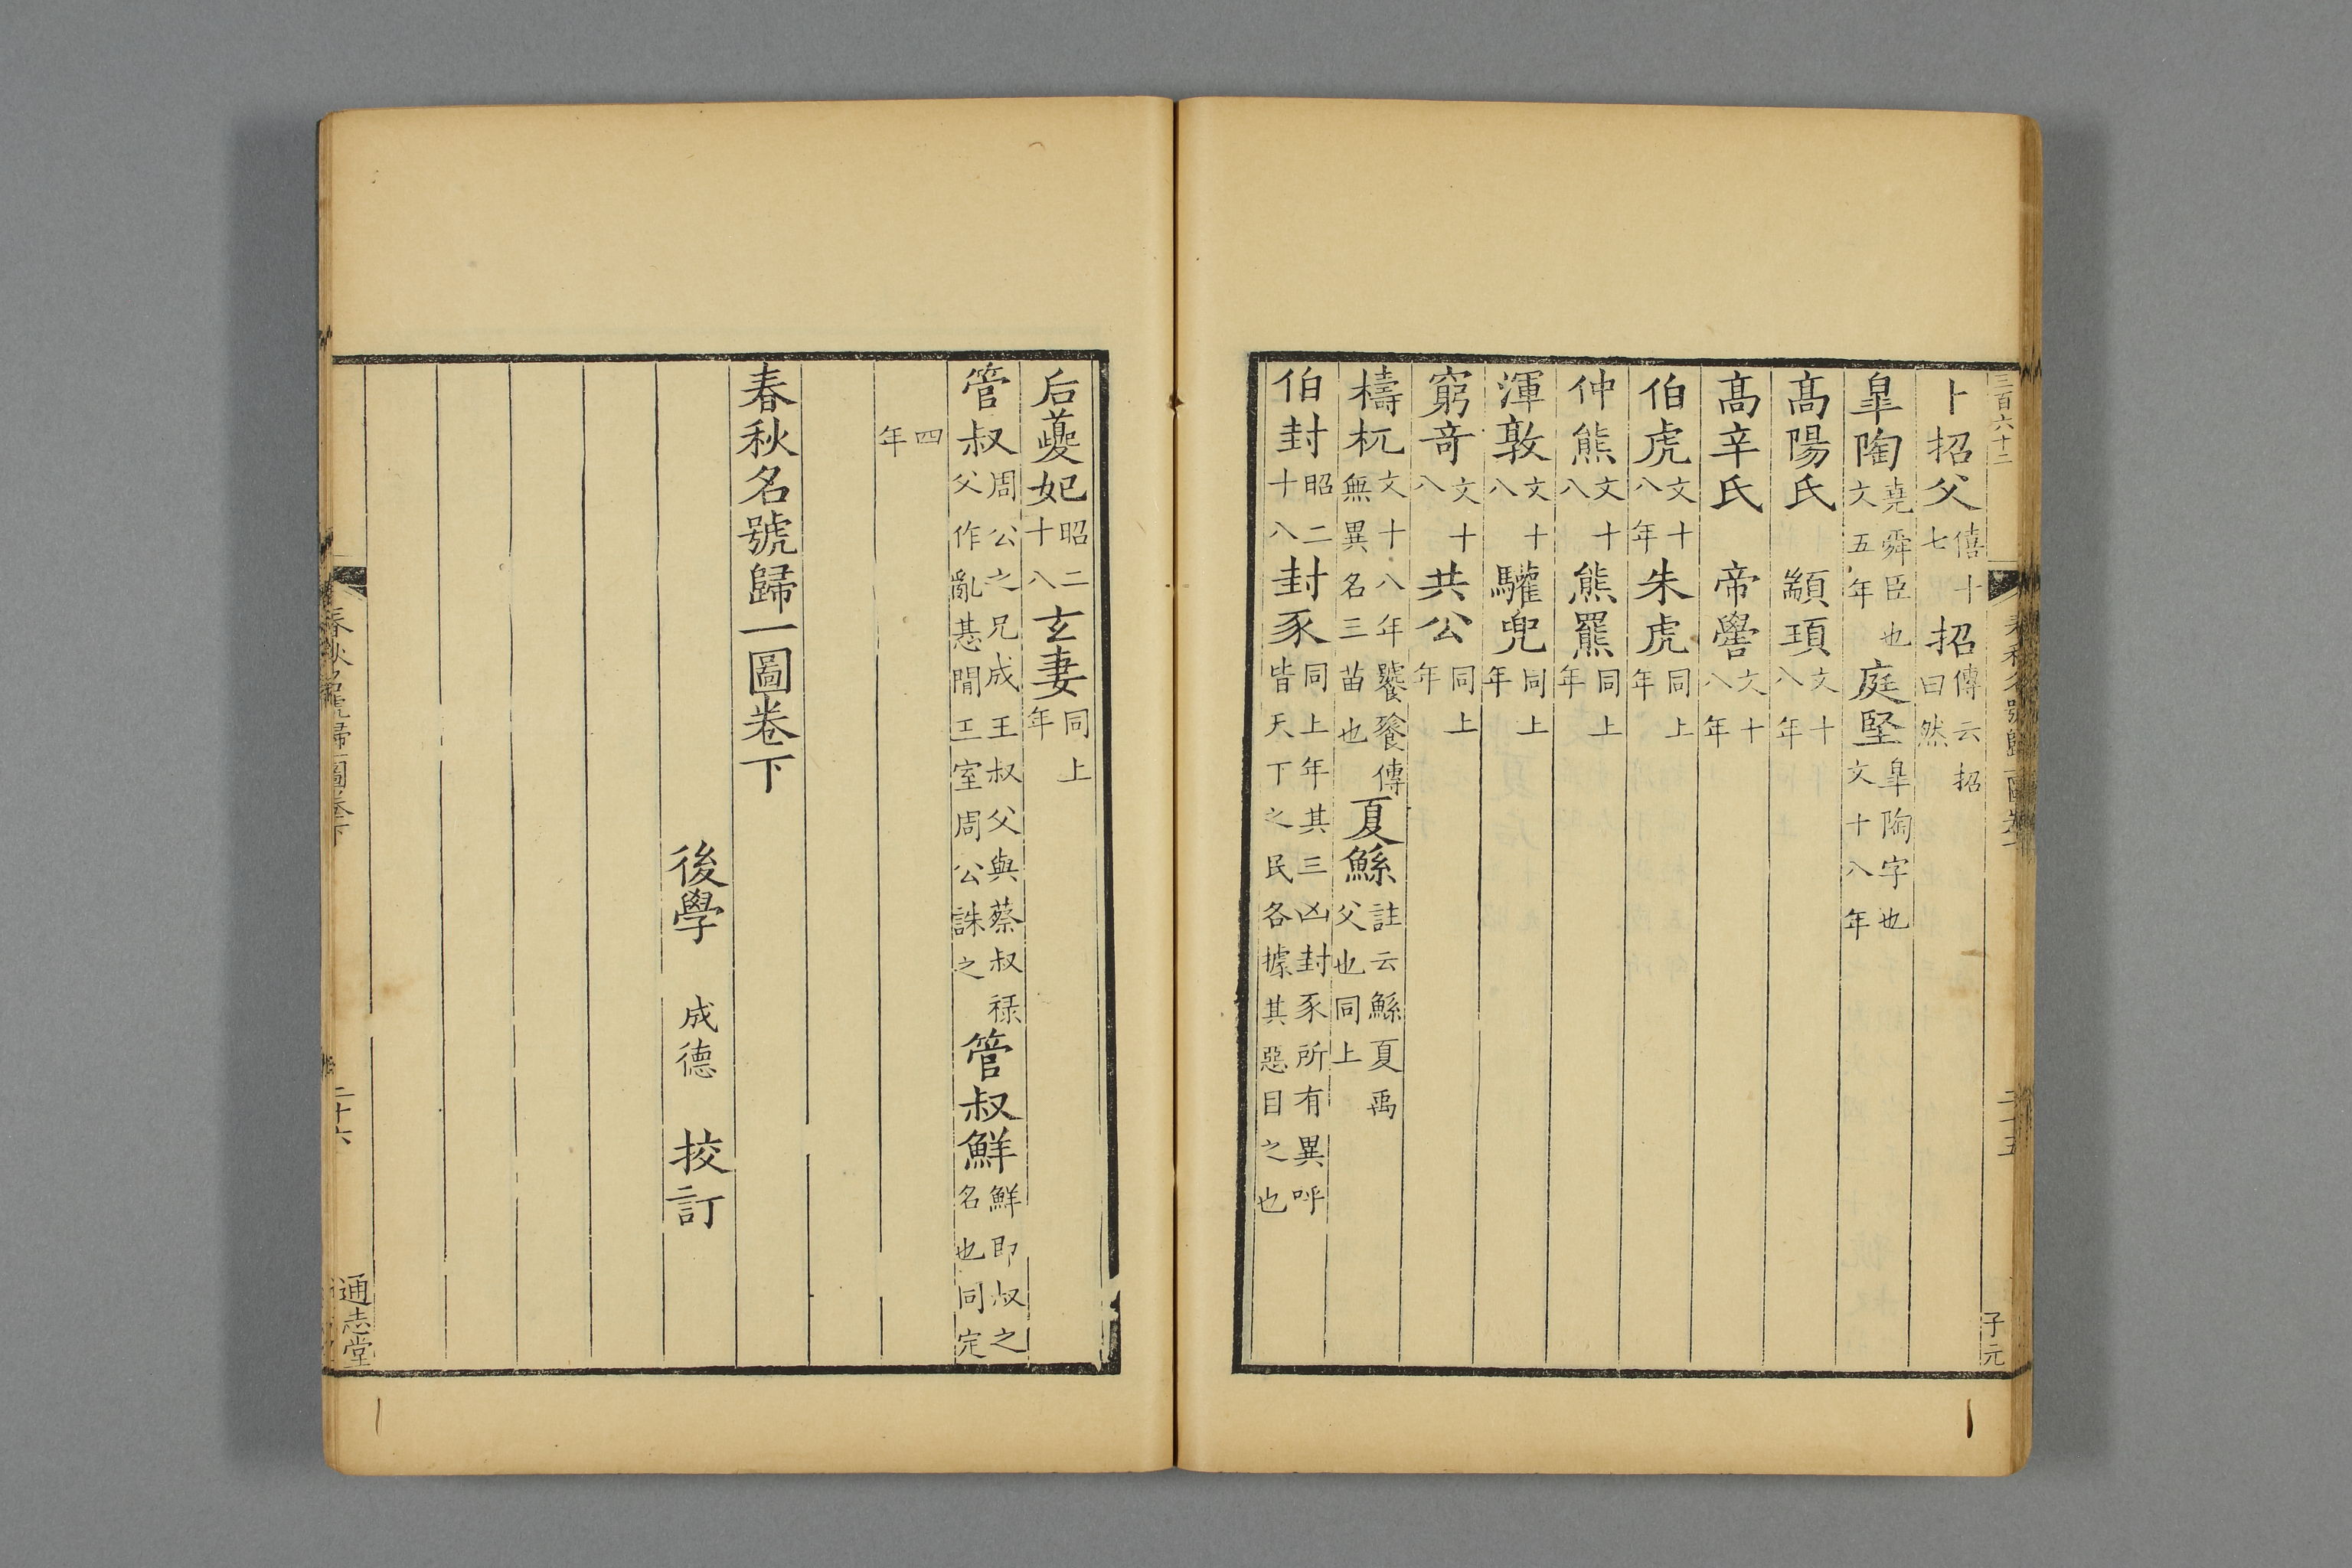 三百六十二
春秋名號歸一圖卷下
二十五
子元
卜招父僖十七招傳云招曰然
皐陶堯舜臣也文五年庭堅皐陶字也文十八年
髙陽氏 顓頊文十八年
髙辛氏 帝嚳文十八年
伯虎文十八年朱虎同上年
仲熊文十八熊羆同上年
渾敦文十八驩兜同上年
窮竒文十八共公同上年
檮杌文十八年饕餮傳無異名三苗也夏鯀註云鯀夏禹父也同上
伯封昭二十八封豕同上年其三凶封豕所有異呼皆天下之民各據其惡目之也
后夔妃昭二十八玄妻同上年
管叔周公之兄成王叔父與蔡叔禄父作亂惎閒王室周公誅之管叔鮮鮮即叔之名也同定
四年
春秋名號歸一圖卷下
後學 成德 挍訂
春秋名號歸一圖卷下
二十六
通志堂